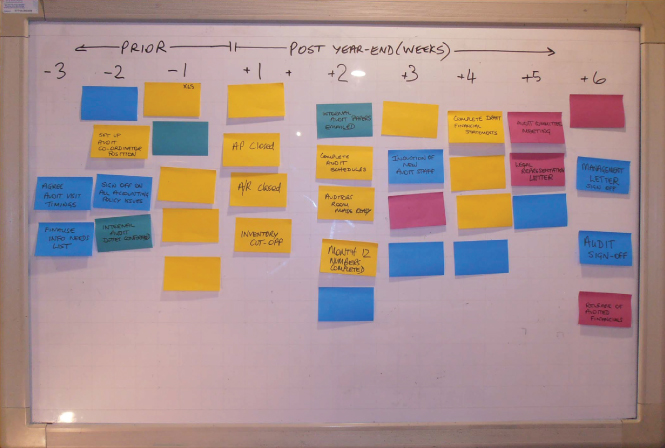 PRIOR
POST YEAR-END (WEEKS)
-3
-2
-1
+1
+
+2
+3
+4
+5
+6
AGREE
AUDIT VISIT
TIMINGS
FINALISE
INFO NEEDS
LIST
SET UP
AUDIT
CO-ORDINATOR
POSITION
SIGN OFF ON
ALL ACCOUNTING
POLICY ISSUES
INTERNAL
AUDIT
AP CLOSED
A/R CLOSED
INVENTORY
CUT-OFF
INTERNAL
AUDIT PAPERS
COMPLETE
AUDIT
SCHEDULES
AUDITORS
ROOM
MADE READY
MONTH 12
NUMBERS
COMPLETED
INDUCTION OF
NEW
AUDIT STAFF
COMPLETE DRAFT
FINANCIAL
STATEMENTS
AUDIT COMMITTEE
MEETING
LEGAL
REPRESENTATION
LETTER
MANAGEMENT
LETTER
SIGN OFF
AUDIT
SIGN-OFF
RELEASE OF
AUDITED
FINANCIALS